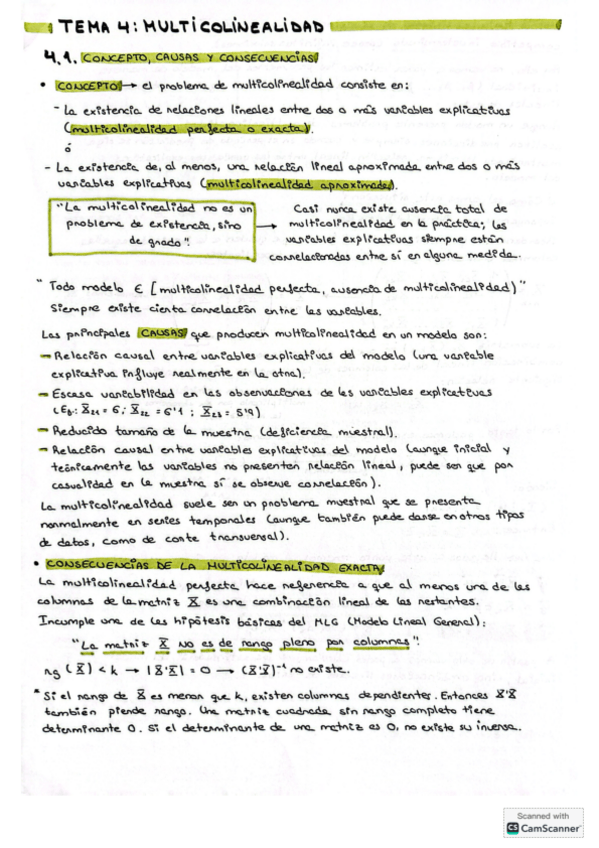 TEMA 4: MULTICOLINEALIDAD
4.1. CONCEPTO, CAUSAS Y CONSECUENCIAS
• CONCEPTO → el problema de multicolinealidad consiste en:
- La existencia de relaciones lineales entre dos o más variables explicativas
(multicolinealidad perfecta o exacta).
ó
- La existencia de, al menos, una relación lineal aproximada entre dos o más
variables explicativas (multicolinealidad aproximada).
"La multicolinealidad no es un
problema de existencia, sino
de grado". →
Casi nunca existe ausencia total de
multicolinealidad en la práctica; las
variables explicativas siempre están
correlacionadas entre sí en alguna medida.
"Todo modelo ∈ [multicolinealidad perfecta, ausencia de multicolinealidad)"
Siempre existe cierta correlación entre las variables.
Las principales CAUSAS que producen multicolinealidad en un modelo son:
- Relación causal entre variables explicativas del modelo (una variable
explicativa influye realmente en la otra).
- Escasa variabilidad en las observaciones de las variables explicativas
(Ej: X21 = 6; X22 = 6'1; X23 = 5'9)
- Reducido tamaño de la muestra (deficiencia muestral).
- Relación causal entre variables explicativas del modelo (aunque inicial y
teóricamente las variables no presenten relación lineal, puede ser que por
casualidad en la muestra sí se observe correlación).
La multicolinealidad suele ser un problema muestral que se presenta
normalmente en series temporales (aunque también puede darse en otros tipos
de datos, como de corte transversal).
• CONSECUENCIAS DE LA MULTICOLINEALIDAD EXACTA
La multicolinealidad perfecta hace referencia a que al menos una de las
columnas de la matriz X es una combinación lineal de las restantes.
Incumple una de las hipótesis básicas del MLG (Modelo Lineal General):
"La matriz X no es de rango pleno por columnas".
rg (X) < k → |X'X| = 0 → (X'X)⁻¹ no existe.
* Si el rango de X es menor que k, existen columnas dependientes. Entonces X'X
también pierde rango. Una matriz cuadrada sin rango completo tiene
determinante 0. Si el determinante de una matriz es 0, no existe su inversa.
Scanned with
CS CamScanner